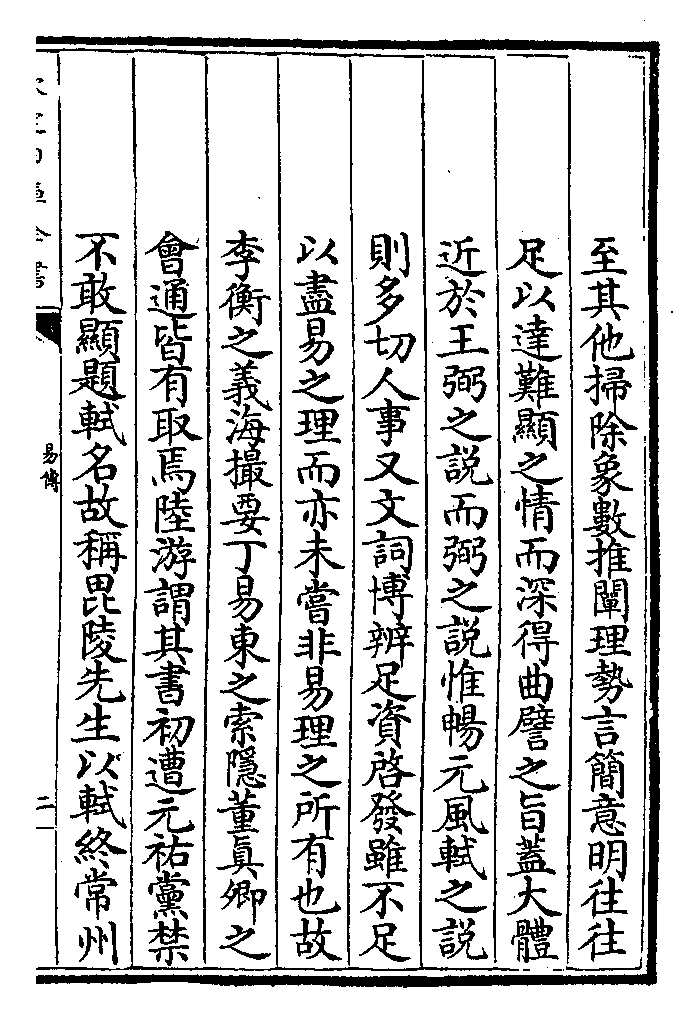 至其他掃除象數推闡理勢言簡意明往往
足以達難顯之情而深得曲譬之旨蓋大體
近於王弼之説而弼之説惟暢元風軾之説
則多切人事又文詞博辨足資啓發雖不足
以盡易之理而亦未嘗非易理之所有也故
李衡之義海撮要丁易東之索隱董真卿之
會通皆有取焉陸游謂其書初遭元祐黨禁
不敢顯題軾名故稱毘陵先生以軾終常州
易傳
二